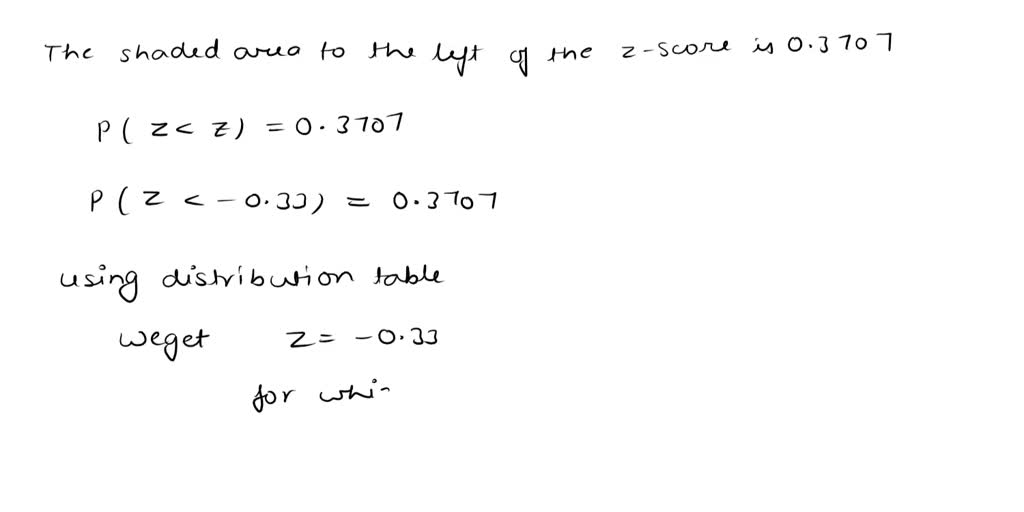 The shaded area to the left of the z-score is 0.3707
P( z< z) = 0.3707
P( z < -0.33) = 0.3707
using distribution table
weget z= -0.33
for whi